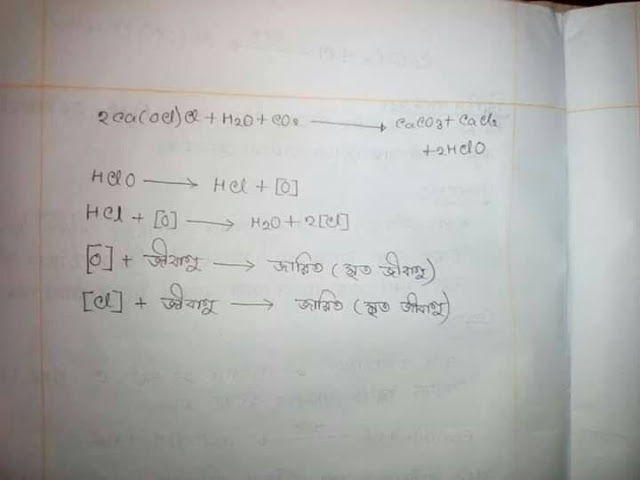 2Ca(OCl)Cl + H2O + CO2 ⟶ CaCO3 + CaCl2
+2HClO
HClO ⟶ HCl + [O]
HCl + [O] ⟶ H2O + 2[Cl]
[O] + জীবাণু ⟶ জারিত (মৃত জীবাণু)
[Cl] + জীবাণু ⟶ জারিত (মৃত জীবাণু)